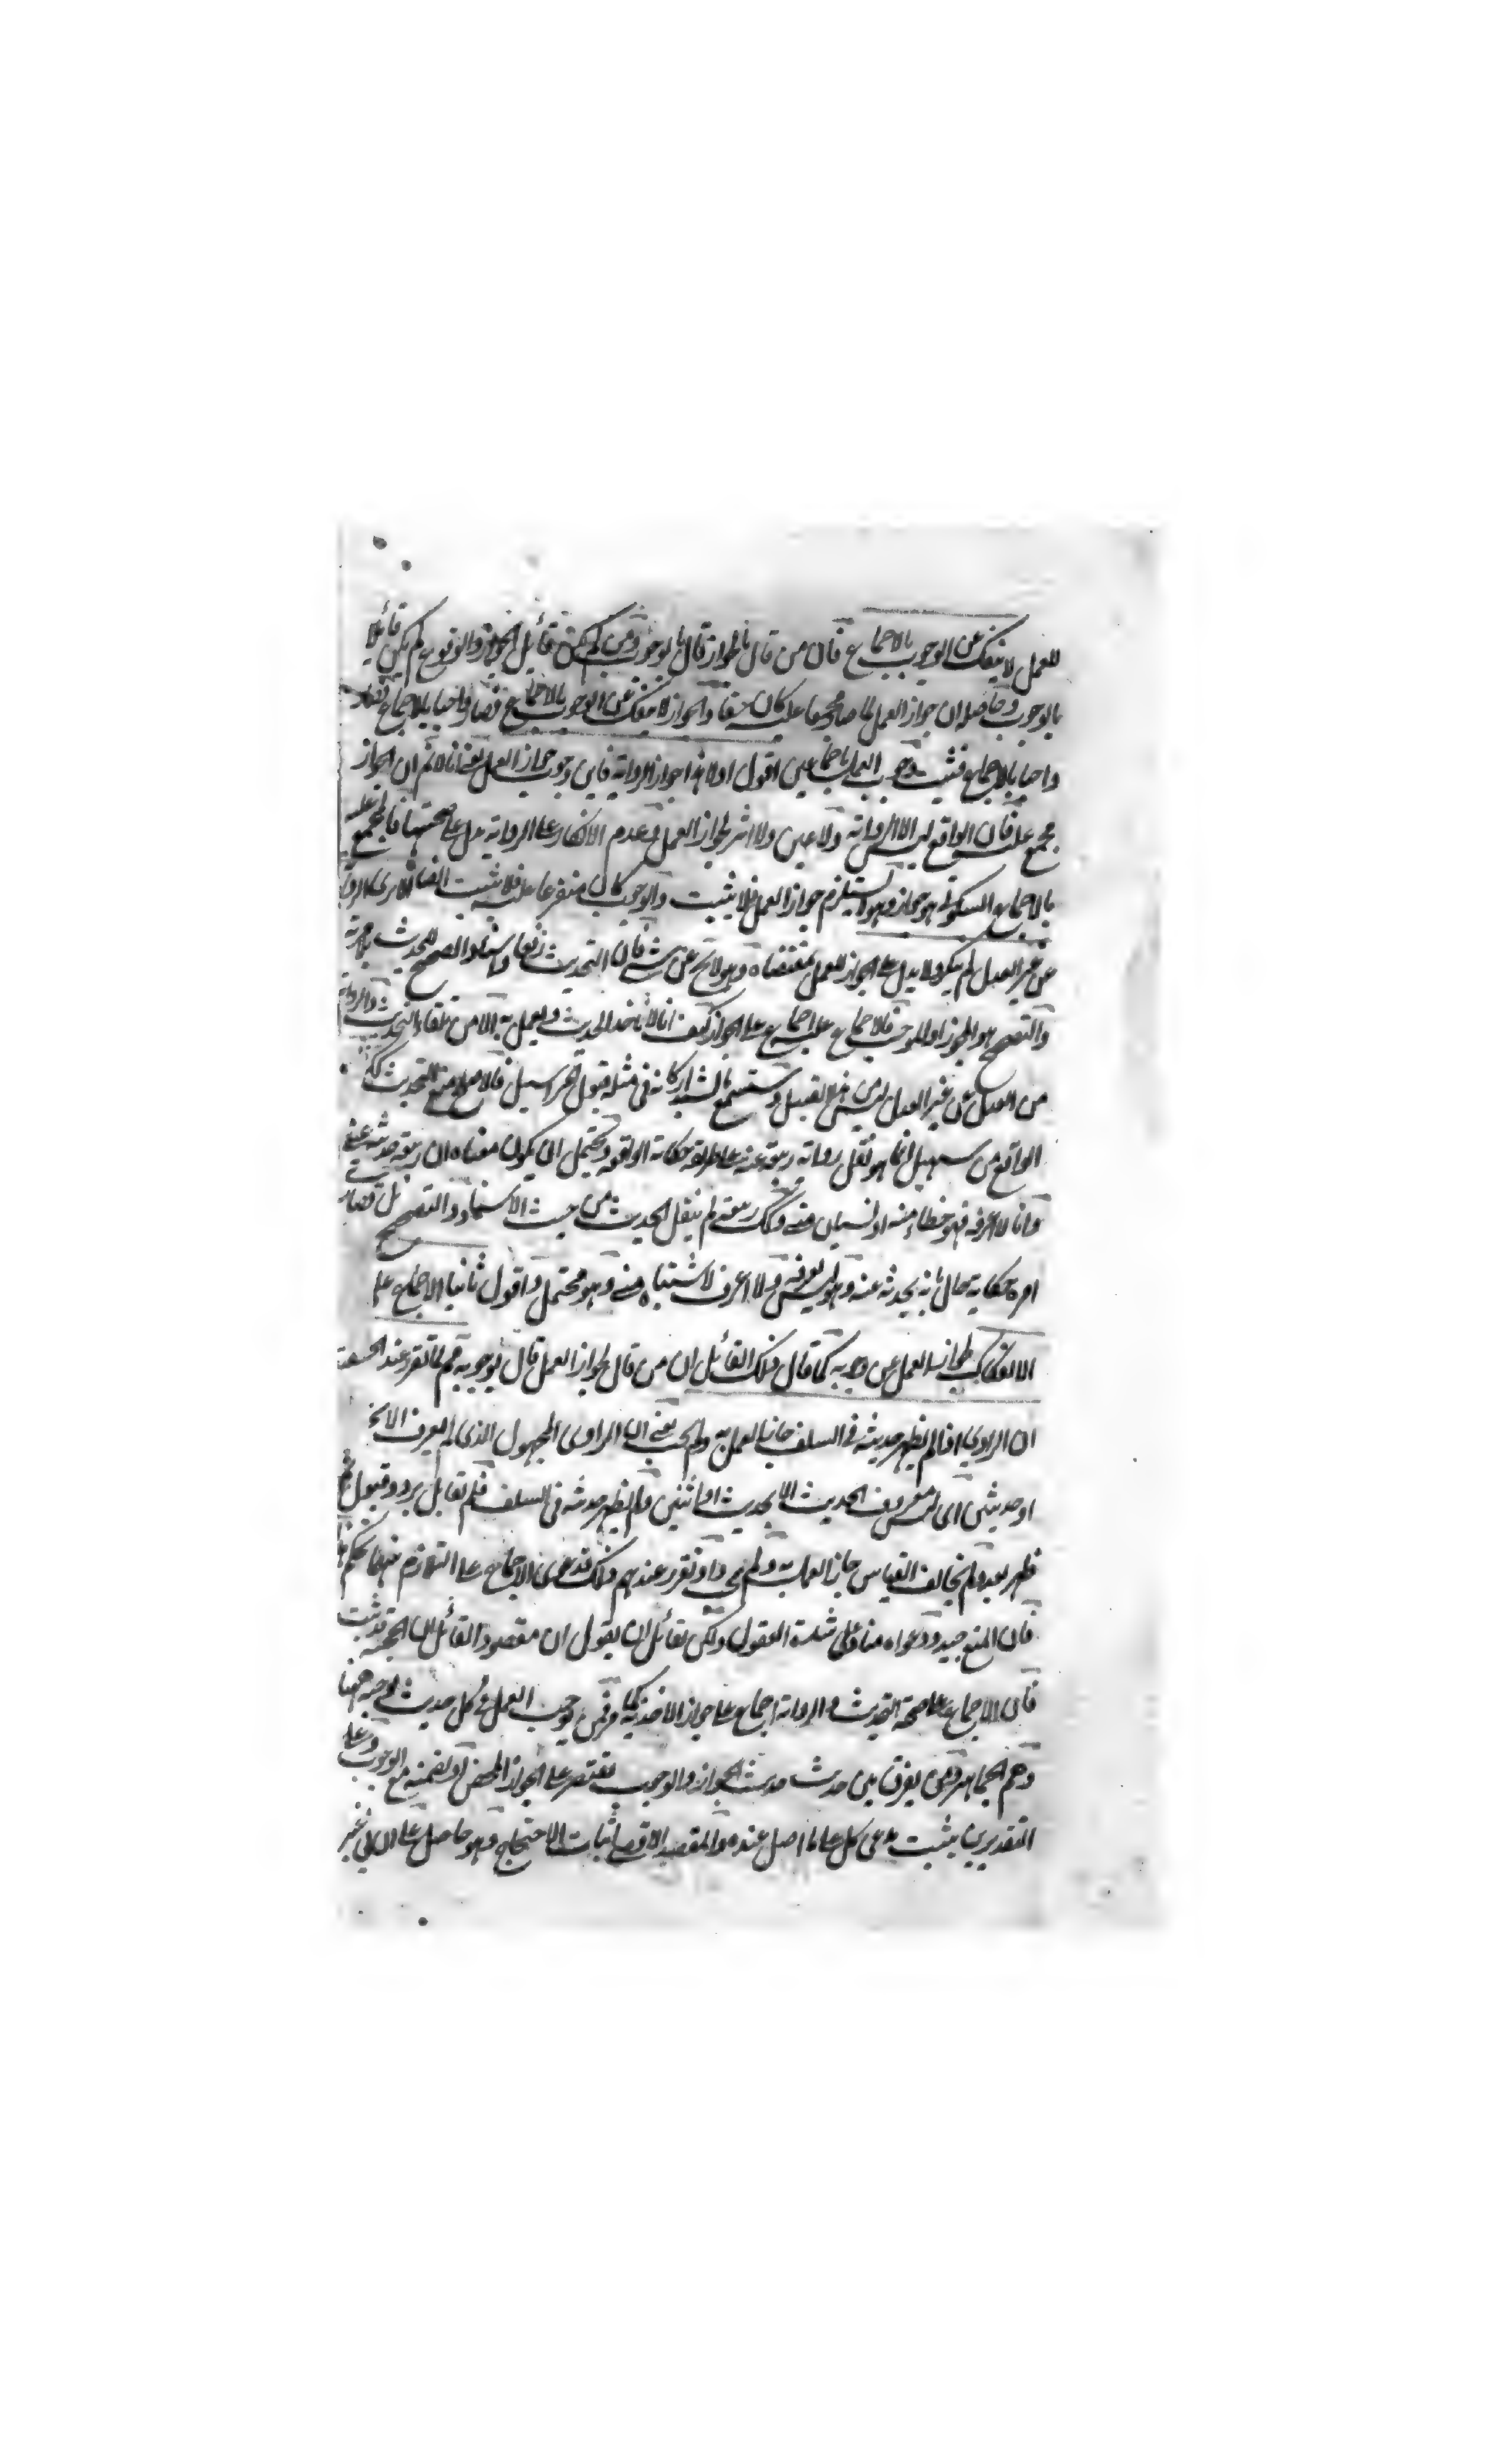 للعمل لا ينفك عن الوجوب بالاجماع فان من قال بالجواز قال بالوجوب ومن لم يكن قائل الجواز والوقوع لم يكن قائلا
بالوجوب وحاصله ان جواز العمل لما صار مجمعا عليه كان حقا والجواز لا ينفك عن الوجوب بالاجماع فصار واجبا بالاجماع فصار
واجبا بالاجماع فثبت وجوب العمل باجماعين اقول اولا هذا جواز الرواية فاين وجوب جواز العمل يعني انا لا نم ان الجواز
مجمع عليه فان الواقع ليس الا الرواية ولا عين ولا اثر لجواز العمل وعدم الانكار على الرواية يدل على صحتها فالمجمع عليه
بالاجماع السكوتي هو جوازه وهو لا يستلزم جواز العمل فلا يثبت والوجوب كان متفرعا عليه فلا يثبت ايضا الا ترى ان الرواية
عن غير العدل لم ينكر ولا يدل على الجواز للعمل بمقتضاه وهو لا يخ عن شئ فان التحديث واسناد الصحيح للحديث
والتصحيح هو المجوز او الموجب فالاجماع عليه اجماع على الجواز كيف انا لا ناخذ الحديث ولا يعمل به الا من تلقاء التحديث والرواية
من العدل عن غير العدل ليس من هذا القبيل وستسمع في مثله قبول سهيل فالاجماع التحديث لكن
الواقع من سهيل انما هو نقل رواية ربيعة عنه على طريقة حكاية الواقعة ويحتمل ان يكون معناه ان ربيعة حدثه عني
وانا لا اعرفه فهو خطاء منه او نسيان مني وكك ربيعة لم ينقل الحديث من حيث الاسناد والتصحيح بل قصار
امره حكاية حال بانه يحدثه عنه وهو ليس يعرفه ولا اعرف لاشتباه مني وهو محتمل واقول ثانيا الاجماع على
الانفكاك لجواز العمل عن وجوبه كما قال ذلك القائل ان من قال بجواز العمل قال بوجوبه مم لما تقرر عند الحنفية
ان الراوي اذا لم يظهر حديثه في السلف جاز العمل به ولم يجب يعني ان الراوي المجهول الذي لم يعرف الا بحديث
او حديثين اي ليس معروف الحديث الا بحديث او اثنين ولم يظهر حديثه في السلف فلم يقابل برد وقبول
فظهر بعده ولم يخالف القياس جاز العمل به ولم يجب واذ تقرر عندهم ذلك فدعوى الاجماع على التلازم بينهما تحكم
فان المنع جيد ودعواه مناد على شدة الغفول ولكن لقائل ان يقول ان مقصود القائل ان الحجية قد ثبت
فان الاجماع على صحة التحديث والرواية اجماع على جواز الاخذ به كما مر فمن يوجب العمل في كل حديث يوجبه ههنا
وهم الجماهير ومن يفرق بين حديث حديث الجواز والوجوب يقتصر على الجواز المحض او يضمنه مع الوجوب وعلى
التقديرين يثبت مدعى كل على ما اصل عنده والمقصد الاقصى اثبات الاحتجاج وهو حاصل على غير